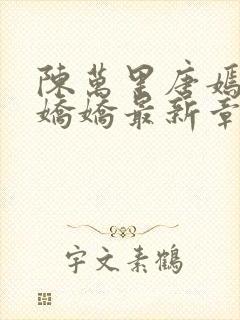 陳萬里唐嫣
嬌嬌最新章
宇文素鶴